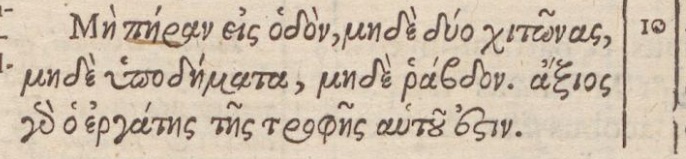 Μὴ πήραν εἰς ὁδὸν, μηδὲ δύο χιτῶνας, 10
μηδὲ ὑποδήματα, μηδὲ ῥάβδον. ἄξιος
γὸ ὁ ἐργάτης τῆς τροφῆς αὐτοῦ ἐστιν.